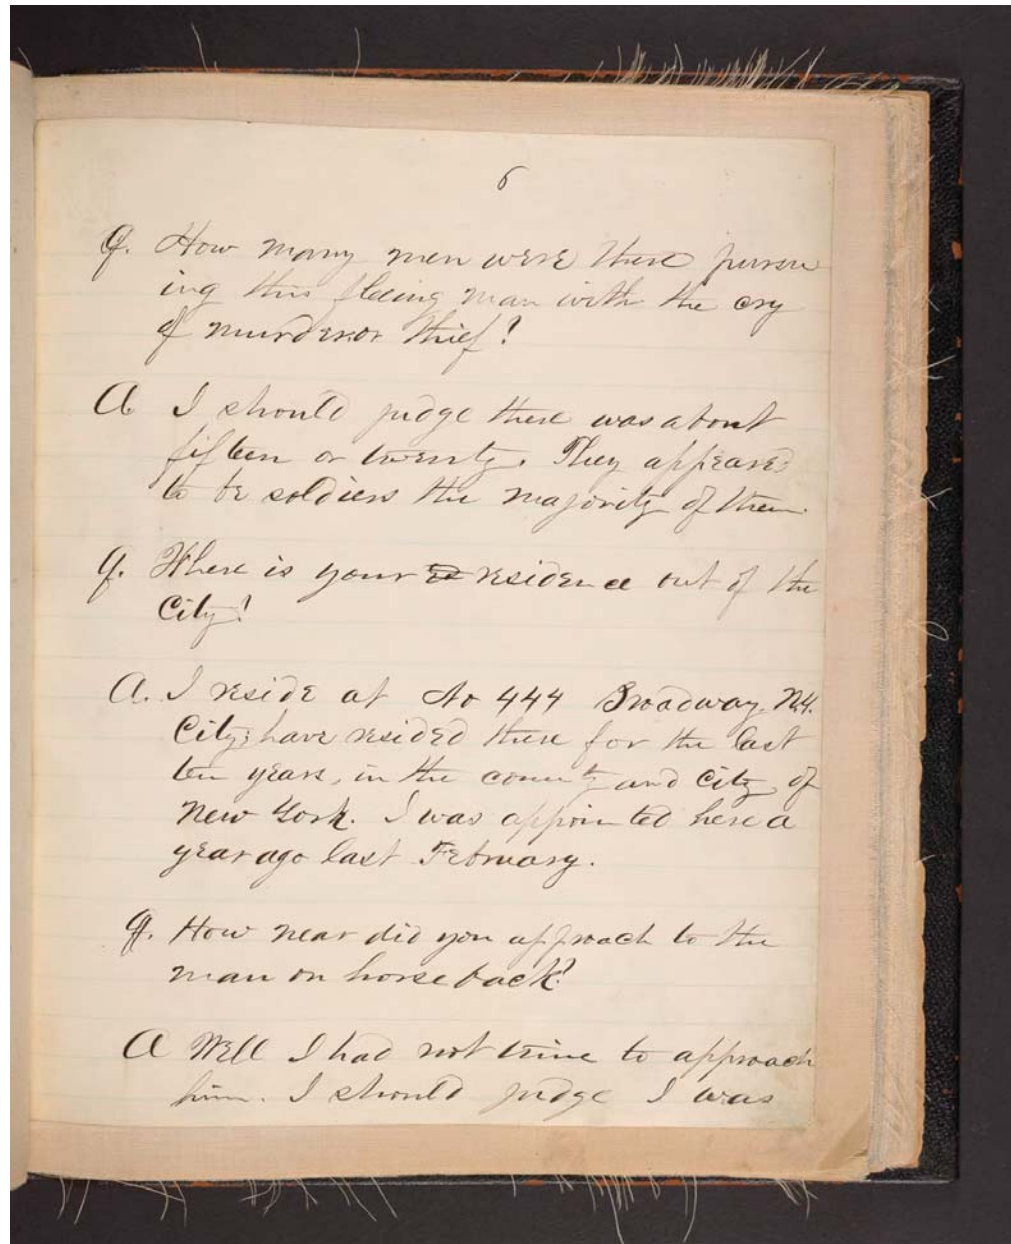 6
Q. How many men were there pursu
ing this fleeing man with the cry
of murder or thief?
A I should judge there was about
fifteen or twenty. They appeared
to be soldiers the majority of them.
Q. Where is your residence out of the
City?
A. I reside at No 444 Broadway. N.Y.
City; have resided there for the last
ten years, in the county and City of
New York. I was appointed here a
year ago last February.
Q. How near did you approach to the
man on horseback?
A Well I had not time to approach
him. I should judge I was